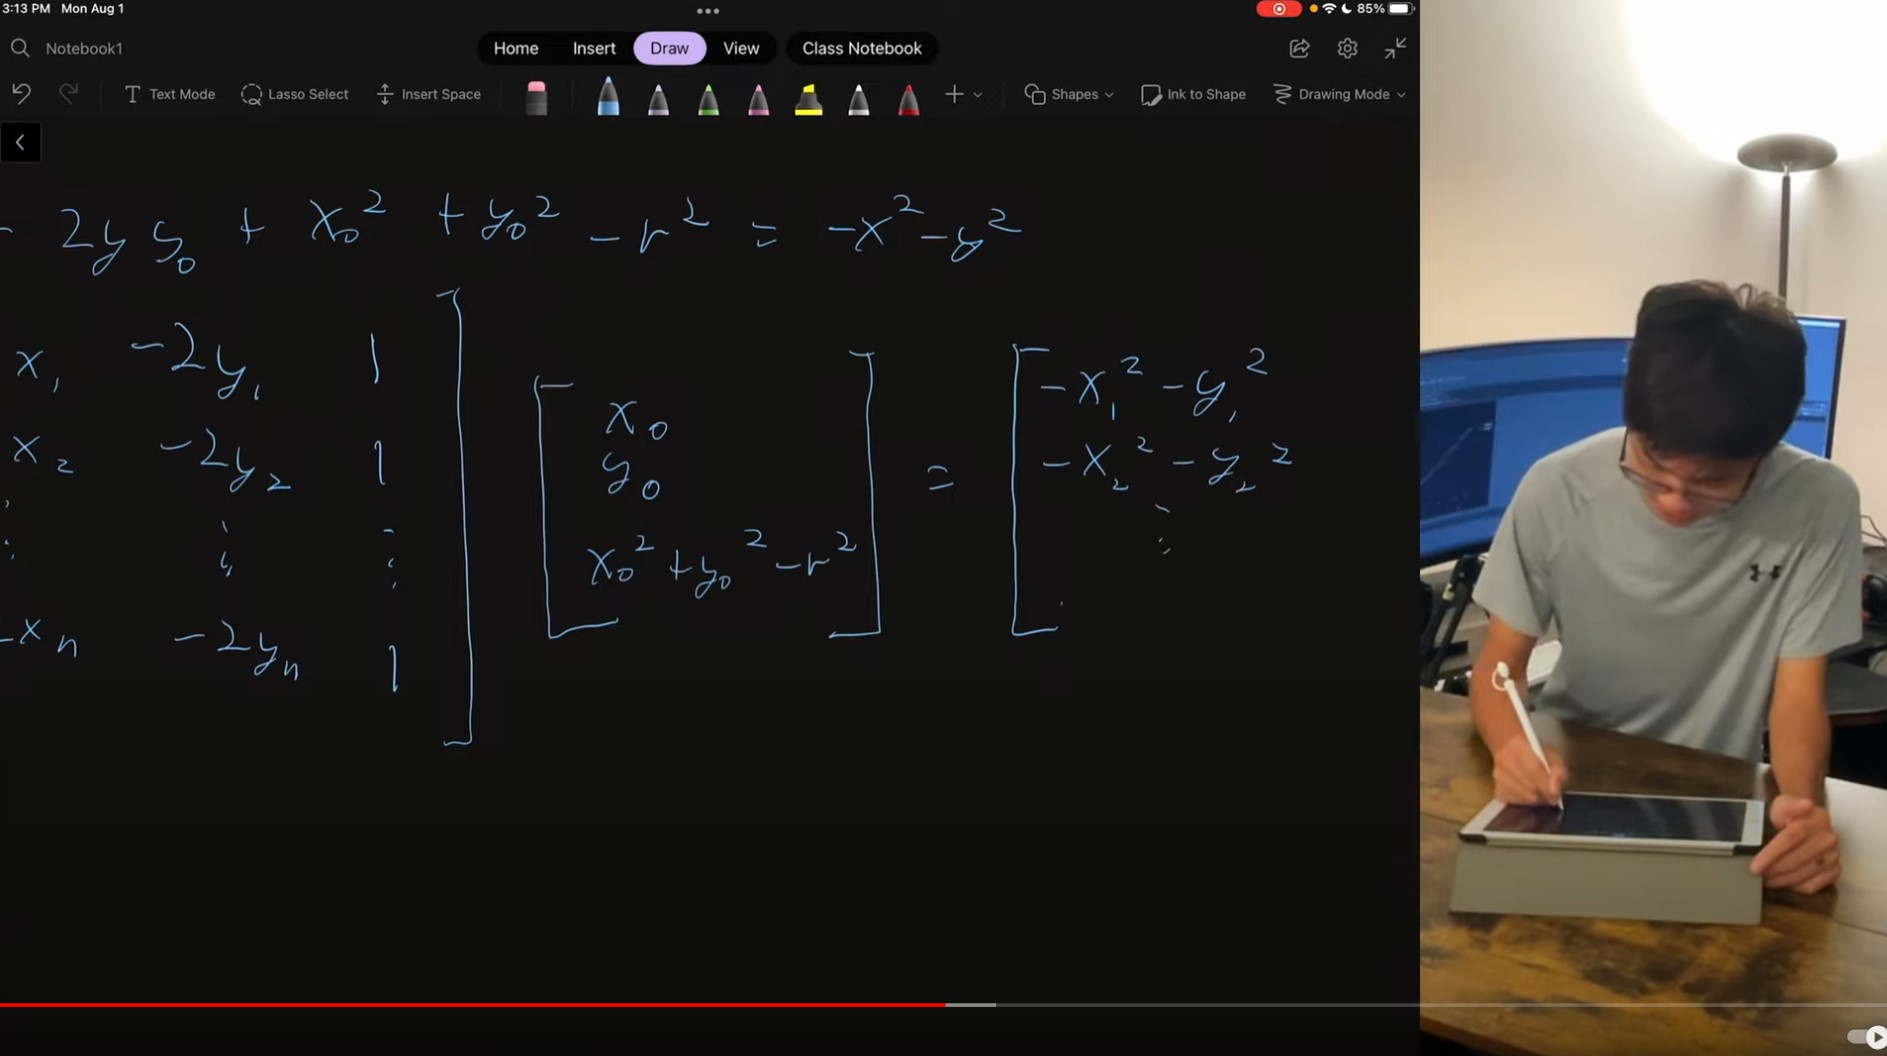 3:13 PM Mon Aug 1
85%
Notebook1
Home Insert Draw View Class Notebook
Text Mode Lasso Select Insert Space Shapes Ink to Shape Drawing Mode
- 2y y₀ + x₀² + y₀² - r² = -x² - y²
x₁ -2y₁ 1
x₂ -2y₂ 1
⋮ ⋮ ⋮
-xₙ -2yₙ 1
x₀
y₀
x₀² + y₀² - r²
=
-x₁² - y₁²
-x₂² - y₂²
⋮